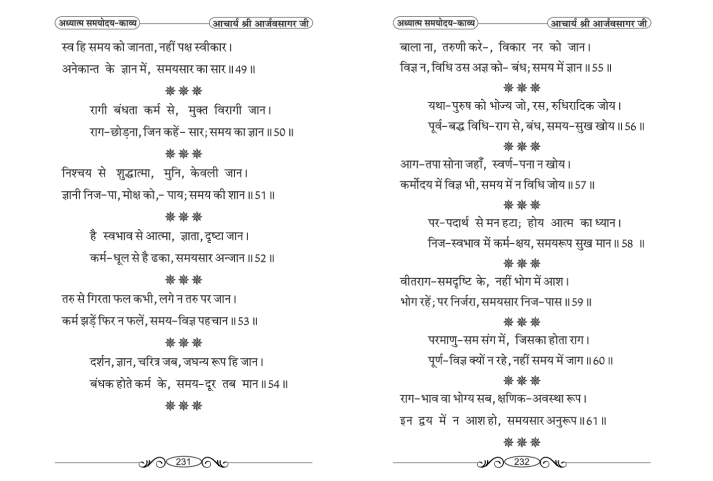 अध्यात्म समयोदय-काव्य
आचार्य श्री आर्जवसागर जी
स्व हि समय को जानता, नहीं पक्ष स्वीकार।
अनेकान्त के ज्ञान में, समयसार का सार॥49॥
रागी बंधता कर्म से, मुक्त विरागी जान।
राग-छोड़ना, जिन कहें- सार; समय का ज्ञान॥50॥
निश्चय से शुद्धात्मा, मुनि, केवली जान।
ज्ञानी निज-पा, मोक्ष को,- पाय; समय की शान॥51॥
है स्वभाव से आत्मा, ज्ञाता, दृष्टा जान।
कर्म-धूल से है ढका, समयसार अन्जान॥52॥
तरु से गिरता फल कभी, लगे न तरु पर जान।
कर्म झड़ें फिर न फलें, समय-विज्ञ पहचान॥53॥
दर्शन, ज्ञान, चरित्र जब, जघन्य रूप हि जान।
बंधक होते कर्म के, समय-दूर तब मान॥54॥
231
अध्यात्म समयोदय-काव्य
आचार्य श्री आर्जवसागर जी
बाला ना, तरुणी करे-, विकार नर को जान।
विज्ञ न, विधि उस अज्ञ को- बंध; समय में ज्ञान॥55॥
यथा-पुरुष को भोज्य जो, रस, रुधिरादिक जोय।
पूर्व-बद्ध विधि-राग से, बंध, समय-सुख खोय॥56॥
आग-तपा सोना जहाँ, स्वर्ण-पना न खोय।
कर्मोदय में विज्ञ भी, समय में न विधि जोय॥57॥
पर-पदार्थ से मन हटा; होय आत्म का ध्यान।
निज-स्वभाव में कर्म-क्षय, समयरूप सुख मान॥58॥
वीतराग-समदृष्टि के, नहीं भोग में आश।
भोग रहें; पर निर्जरा, समयसार निज-पास॥59॥
परमाणु-सम संग में, जिसका होता राग।
पूर्ण-विज्ञ क्यों न रहे, नहीं समय में जाग॥60॥
राग-भाव वा भोग्य सब, क्षणिक-अवस्था रूप।
इन द्वय में न आश हो, समयसार अनुरूप॥61॥
232